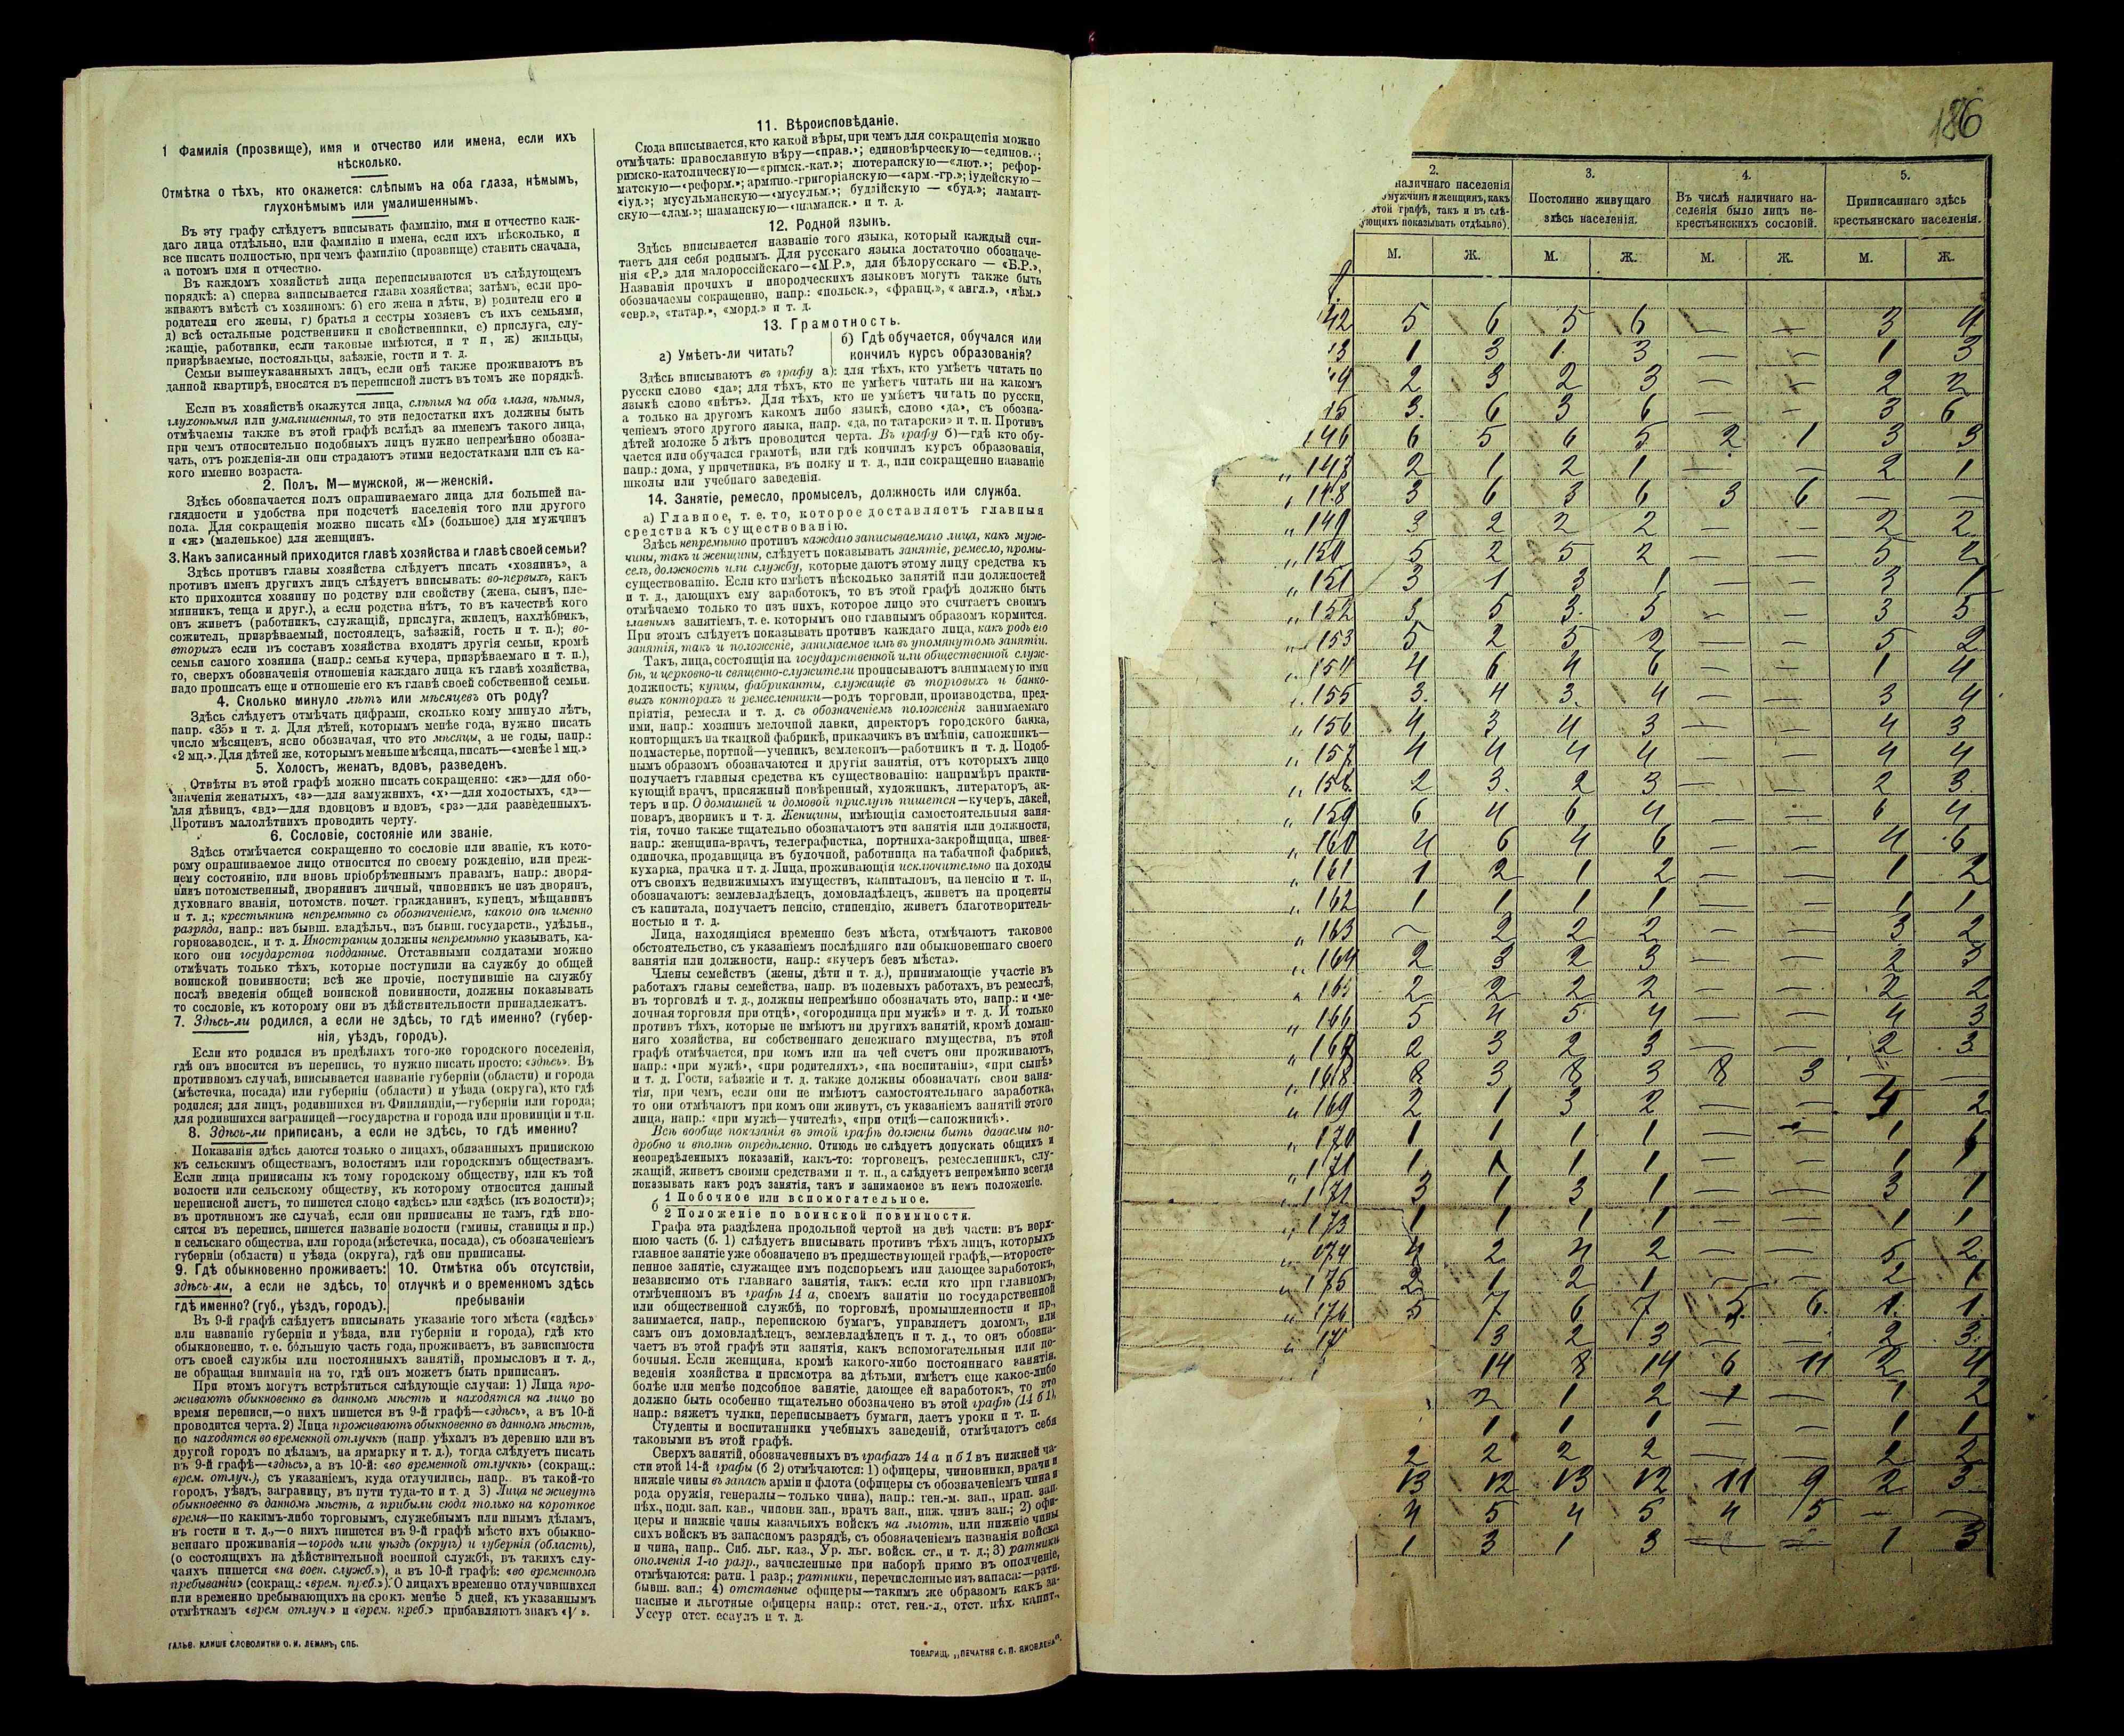 1 Фамилія (прозвище), имя и отчество или имена, если ихъ
нѣсколько.
Отмѣтка о тѣхъ, кто окажется: слѣпымъ на оба глаза, нѣмымъ,
глухонѣмымъ или умалишеннымъ.
Въ эту графу слѣдуетъ вписывать фамилію, имя и отчество каж-
даго лица отдѣльно, или фамилію и имена, если ихъ нѣсколько, и
все писать полностью, при чемъ фамилію (прозвище) ставить сначала,
а потомъ имя и отчество.
Въ каждомъ хозяйствѣ лица переписываются въ слѣдующемъ
порядкѣ: а) сперва записывается глава хозяйства; затѣмъ, если про-
живаютъ вмѣстѣ съ хозяиномъ: б) его жена и дѣти, в) родители его и
родители его жены, г) братья и сестры хозяевъ съ ихъ семьями,
д) всѣ остальные родственники и свойственники, е) прислуга, слу-
жащіе, работники, если таковые имѣются, и т п, ж) жильцы,
призрѣваемые, постояльцы, заѣзжіе, гости и т. д.
Семьи вышеуказанныхъ лицъ, если онѣ также проживаютъ въ
данной квартирѣ, вносятся въ переписной листъ въ томъ же порядкѣ.
Если въ хозяйствѣ окажутся лица, слѣпыя на оба глаза, нѣмыя,
глухонѣмыя или умалишенныя, то эти недостатки ихъ должны быть
отмѣчаемы также въ этой графѣ вслѣдъ за именемъ такого лица,
при чемъ относительно подобныхъ лицъ нужно непремѣнно обозна-
чать, отъ рожденія-ли они страдаютъ этими недостатками или съ ка-
кого именно возраста.
2. Полъ. М—мужской, ж—женскій.
Здѣсь обозначается полъ опрашиваемаго лица для большей на-
глядности и удобства при подсчетѣ населенія того или другого
пола. Для сокращенія можно писать «М» (большое) для мужчинъ
и «ж» (маленькое) для женщинъ.
3. Какъ записанный приходится главѣ хозяйства и главѣ своей семьи?
Здѣсь противъ главы хозяйства слѣдуетъ писать «хозяинъ», а
противъ именъ другихъ лицъ слѣдуетъ вписывать: во-первыхъ, какъ
кто приходится хозяину по родству или свойству (жена, сынъ, пле-
мянникъ, теща и друг.), а если родства нѣтъ, то въ качествѣ кого
онъ живетъ (работникъ, служащій, прислуга, жилецъ, нахлѣбникъ,
сожитель, призрѣваемый, постоялецъ, заѣзжій, гость и т. п.); во-
вторыхъ если въ составъ хозяйства входятъ другія семьи, кромѣ
семьи самого хозяина (напр.: семья кучера, призрѣваемаго и т. п.),
то, сверхъ обозначенія отношенія каждаго лица къ главѣ хозяйства,
надо прописать еще и отношеніе его къ главѣ своей собственной семьи.
4. Сколько минуло лѣтъ или мѣсяцевъ отъ роду?
Здѣсь слѣдуетъ отмѣчать цифрами, сколько кому минуло лѣтъ,
напр. «35» и т. д. Для дѣтей, которымъ менѣе года, нужно писать
число мѣсяцевъ, ясно обозначая, что это мѣсяцы, а не годы, напр.:
«2 мц.». Для дѣтей же, которымъ меньше мѣсяца, писать—«менѣе 1 мц.»
5. Холостъ, женатъ, вдовъ, разведенъ.
Отвѣты въ этой графѣ можно писать сокращенно: «ж»—для обо-
значенія женатыхъ, «з»—для замужнихъ, «х»—для холостыхъ, «д»—
для дѣвицъ, «вд»—для вдовцовъ и вдовъ, «рз»—для разведенныхъ.
Противъ малолѣтнихъ проводить черту.
6. Сословіе, состояніе или званіе.
Здѣсь отмѣчается сокращенно то сословіе или званіе, къ кото-
рому опрашиваемое лицо относится по своему рожденію, или преж-
нему состоянію, или вновь пріобрѣтеннымъ правамъ, напр.: дворя-
нинъ потомственный, дворянинъ личный, чиновникъ не изъ дворянъ,
духовнаго званія, потомств. почет. гражданинъ, купецъ, мѣщанинъ
и т. д.; крестьянинъ непремѣнно съ обозначеніемъ, какого онъ именно
разряда, напр.: изъ бывш. владѣльч., изъ бывш. государств., удѣльн.,
горнозаводск., и т. д. Иностранцы должны непремѣнно указывать, ка-
кого они государства подданные. Отставными солдатами можно
отмѣчать только тѣхъ, которые поступили на службу до общей
воинской повинности; всѣ же прочіе, поступившіе на службу
послѣ введенія общей воинской повинности, должны показывать
то сословіе, къ которому они въ дѣйствительности принадлежатъ.
7. Здѣсь-ли родился, а если не здѣсь, то гдѣ именно? (губер-
нія, уѣздъ, городъ).
Если кто родился въ предѣлахъ того-же городского поселенія,
гдѣ онъ вносится въ перепись, то нужно писать просто: «здѣсь». Въ
противномъ случаѣ, вписывается названіе губерніи (области) и города
(мѣстечка, посада) или губерніи (области) и уѣзда (округа), кто гдѣ
родился; для лицъ, родившихся въ Финляндіи,—губерніи или города;
для родившихся заграницей—государства и города или провинціи и т.п.
8. Здѣсь-ли приписанъ, а если не здѣсь, то гдѣ именно?
Показанія здѣсь даются только о лицахъ, обязанныхъ припискою
къ сельскимъ обществамъ, волостямъ или городскимъ обществамъ.
Если лица приписаны къ тому городскому обществу, или къ той
волости или сельскому обществу, къ которому относится данный
переписной листъ, то пишется слово «здѣсь» или «здѣсь (къ волости)»;
въ противномъ же случаѣ, если они приписаны не тамъ, гдѣ вно-
сятся въ перепись, пишется названіе волости (гмины, станицы и пр.)
и сельскаго общества, или города (мѣстечка, посада), съ обозначеніемъ
губерніи (области) и уѣзда (округа), гдѣ они приписаны.
9. Гдѣ обыкновенно проживаетъ:
здѣсь-ли, а если не здѣсь, то
гдѣ именно? (губ., уѣздъ, городъ).
10. Отмѣтка объ отсутствіи,
отлучкѣ и о временномъ здѣсь
пребываніи
Въ 9-й графѣ слѣдуетъ вписывать указаніе того мѣста («здѣсь»
или названіе губерніи и уѣзда, или губерніи и города), гдѣ кто
обыкновенно, т. е. большую часть года, проживаетъ, въ зависимости
отъ своей службы или постоянныхъ занятій, промысловъ и т. д.,
не обращая вниманія на то, гдѣ онъ можетъ быть приписанъ.
При этомъ могутъ встрѣтиться слѣдующіе случаи: 1) Лица про-
живаютъ обыкновенно въ данномъ мѣстѣ и находятся на лицо во
время переписи,—о нихъ пишется въ 9-й графѣ—«здѣсь», а въ 10-й
проводится черта. 2) Лица проживаютъ обыкновенно въ данномъ мѣстѣ,
но находятся во временной отлучкѣ (напр. уѣхалъ въ деревню или въ
другой городъ по дѣламъ, на ярмарку и т. д.), тогда слѣдуетъ писать
въ 9-й графѣ—«здѣсь», а въ 10-й: «во временной отлучкѣ» (сокращ.:
врем. отлуч.), съ указаніемъ, куда отлучились, напр.. въ такой-то
городъ, уѣздъ, заграницу, въ пути туда-то и т. д 3) Лица не живутъ
обыкновенно въ данномъ мѣстѣ, а прибыли сюда только на короткое
время—по какимъ-либо торговымъ, служебнымъ или инымъ дѣламъ,
въ гости и т. д.,—о нихъ пишется въ 9-й графѣ мѣсто ихъ обыкно-
веннаго проживанія—городъ или уѣздъ (округъ) и губернія (область),
(о состоящихъ на дѣйствительной военной службѣ, въ такихъ слу-
чаяхъ пишется «на воен. служб.»), а въ 10-й графѣ: «во временномъ
пребываніи» (сокращ.: «врем. преб.»). О лицахъ временно отлучившихся
или временно пребывающихъ на срокъ менѣе 5 дней, къ указаннымъ
отмѣткамъ «врем отлуч.» и «врем. преб.» прибавляютъ знакъ «V».
ГАЛЬВ. КЛИШЕ СЛОВОЛИТНИ О. И. ЛЕМАНЪ, СПБ.
11. Вѣроисповѣданіе.
Сюда вписывается, кто какой вѣры, при чемъ для сокращенія можно
отмѣчать: православную вѣру—«прав.»; единовѣрческую—«единов.»;
римско-католическую—«римск.-кат.»; лютеранскую—«лют.»; рефор-
матскую—«реформ.»; армяно-григоріанскую—«арм.-гр.»; іудейскую—
«іуд.»; мусульманскую—«мусульм.»; буддійскую — «буд.»; ламаит-
скую—«лам.»; шаманскую—«шаманск.» и т. д.
12. Родной языкъ.
Здѣсь вписывается названіе того языка, который каждый счи-
таетъ для себя роднымъ. Для русскаго языка достаточно обозначе-
нія «Р.» для малороссійскаго—«М.Р.», для бѣлорусскаго — «Б.Р.»,
Названія прочихъ и инородческихъ языковъ могутъ также быть
обозначаемы сокращенно, напр.: «польск.», «франц.», « англ.», «нѣм.»
«евр.», «татар.», «морд.» и т. д.
13. Грамотность.
а) Умѣетъ-ли читать?
б) Гдѣ обучается, обучался или
кончилъ курсъ образованія?
Здѣсь вписываютъ въ графу а): для тѣхъ, кто умѣетъ читать по
русски слово «да»; для тѣхъ, кто не умѣетъ читать ни на какомъ
языкѣ слово «нѣтъ». Для тѣхъ, кто не умѣетъ читать по русски,
а только на другомъ какомъ либо языкѣ, слово «да», съ обозна-
ченіемъ этого другого языка, напр. «да, по татарски» и т. п. Противъ
дѣтей моложе 5 лѣтъ проводится черта. Въ графу б)—гдѣ кто обу-
чается или обучался грамотѣ, или гдѣ кончилъ курсъ образованія,
напр.: дома, у причетника, въ полку и т. д., или сокращенно названіе
школы или учебнаго заведенія.
14. Занятіе, ремесло, промыселъ, должность или служба.
а) Главное, т. е. то, которое доставляетъ главныя
средства къ существованію.
Здѣсь непремѣнно противъ каждаго записываемаго лица, какъ муж-
чины, такъ и женщины, слѣдуетъ показывать занятіе, ремесло, промы-
селъ, должность или службу, которые даютъ этому лицу средства къ
существованію. Если кто имѣетъ нѣсколько занятій или должностей
и т. д., дающихъ ему заработокъ, то въ этой графѣ должно быть
отмѣчаемо только то изъ нихъ, которое лицо это считаетъ своимъ
главнымъ занятіемъ, т. е. которымъ оно главнымъ образомъ кормится.
При этомъ слѣдуетъ показывать противъ каждаго лица, какъ родъ его
занятія, такъ и положеніе, занимаемое имъ въ упомянутомъ занятіи.
Такъ, лица, состоящія на государственной или общественной служ-
бѣ, и церковно-и священно-служители прописываютъ занимаемую ими
должность; купцы, фабриканты, служащіе въ торговыхъ и банко-
выхъ конторахъ и ремесленники—родъ торговли, производства, пред-
пріятія, ремесла и т. д. съ обозначеніемъ положенія занимаемаго
ими, напр.: хозяинъ мелочной лавки, директоръ городского банка,
конторщикъ на ткацкой фабрикѣ, приказчикъ въ имѣніи, сапожникъ—
подмастерье, портной—ученикъ, землекопъ—работникъ и т. д. Подоб-
нымъ образомъ обозначаются и другія занятія, отъ которыхъ лицо
получаетъ главныя средства къ существованію: напримѣръ практи-
кующій врачъ, присяжный повѣренный, художникъ, литераторъ, ак-
теръ и пр. О домашней и домовой прислугѣ пишется—кучеръ, лакей,
поваръ, дворникъ и т. д. Женщины, имѣющія самостоятельныя заня-
тія, точно также тщательно обозначаютъ эти занятія или должности,
напр.: женщина-врачъ, телеграфистка, портниха-закройщица, швея-
одиночка, продавщица въ булочной, работница на табачной фабрикѣ,
кухарка, прачка и т. д. Лица, проживающія исключительно на доходы
отъ своихъ недвижимыхъ имуществъ, капиталовъ, на пенсію и т. п.,
обозначаютъ: землевладѣлецъ, домовладѣлецъ, живетъ на проценты
съ капитала, получаетъ пенсію, стипендію, живетъ благотворитель-
ностью и т. д.
Лица, находящіяся временно безъ мѣста, отмѣчаютъ таковое
обстоятельство, съ указаніемъ послѣдняго или обыкновеннаго своего
занятія или должности, напр.: «кучеръ безъ мѣста».
Члены семействъ (жены, дѣти и т. д.), принимающіе участіе въ
работахъ главы семейства, напр. въ полевыхъ работахъ, въ ремеслѣ,
въ торговлѣ и т. д., должны непремѣнно обозначать это, напр.: и «ме-
лочная торговля при отцѣ», «огородница при мужѣ» и т. д. И только
противъ тѣхъ, которые не имѣютъ ни другихъ занятій, кромѣ домаш-
няго хозяйства, ни собственнаго денежнаго имущества, въ этой
графѣ отмѣчается, при комъ или на чей счетъ они проживаютъ,
напр.: «при мужѣ», «при родителяхъ», «на воспитаніи», «при сынѣ»
и т. д. Гости, заѣзжіе и т. д. также должны обозначать свои заня-
тія, при чемъ, если они не имѣютъ самостоятельнаго заработка,
то они отмѣчаютъ при комъ они живутъ, съ указаніемъ занятій этого
лица, напр.: «при мужѣ—учителѣ», «при отцѣ—сапожникѣ».
Всѣ вообще показанія въ этой графѣ должны быть даваемы по-
дробно и вполнѣ опредѣленно. Отнюдь не слѣдуетъ допускать общихъ и
неопредѣленныхъ показаній, какъ-то: торговецъ, ремесленникъ, слу-
жащій, живетъ своими средствами и т. п., а слѣдуетъ непремѣнно всегда
показывать какъ родъ занятія, такъ и занимаемое въ немъ положеніе.
б 1 Побочное или вспомогательное.
2 Положеніе по воинской повинности.
Графа эта раздѣлена продольной чертой на двѣ части: въ верх-
нюю часть (б. 1) слѣдуетъ вписывать противъ тѣхъ лицъ, которыхъ
главное занятіе уже обозначено въ предшествующей графѣ,—второсте-
пенное занятіе, служащее имъ подспорьемъ или дающее заработокъ,
независимо отъ главнаго занятія, такъ: если кто при главномъ,
отмѣченномъ въ графѣ 14 а, своемъ занятіи по государственной
или общественной службѣ, по торговлѣ, промышленности и пр.,
занимается, напр., перепискою бумагъ, управляетъ домомъ, или
самъ онъ домовладѣлецъ, землевладѣлецъ и т. д., то онъ обозна-
чаетъ въ этой графѣ эти занятія, какъ вспомогательныя или по-
бочныя. Если женщина, кромѣ какого-либо постояннаго занятія,
веденія хозяйства и присмотра за дѣтьми, имѣетъ еще какое-либо
болѣе или менѣе подсобное занятіе, дающее ей заработокъ, то это
должно быть особенно тщательно обозначено въ этой графѣ (14 б 1),
напр.: вяжетъ чулки, переписываетъ бумаги, даетъ уроки и т. п.
Студенты и воспитанники учебныхъ заведеній, отмѣчаютъ себя
таковыми въ этой графѣ.
Сверхъ занятій, обозначенныхъ въ графахъ 14 а и б 1 въ нижней ча-
сти этой 14-й графы (б 2) отмѣчаются: 1) офицеры, чиновники, врачи и
нижніе чины въ запасѣ арміи и флота (офицеры съ обозначеніемъ чина и
рода оружія, генералы—только чина), напр.: ген.-м. зап., прап. зап.
пѣх., подп. зап. кав., чиновн. зап., врачъ зап., ниж. чинъ зап.; 2) офи-
церы и нижніе чины казачьихъ войскъ на льготѣ, или нижніе чины
сихъ войскъ въ запасномъ разрядѣ, съ обозначеніемъ названія войска
и чина, напр.. Сиб. льг. каз., Ур. льг. войск. ст., и т. д.; 3) ратники
ополченія 1-го разр., зачисленные при наборѣ прямо въ ополченіе,
отмѣчаются: ратн. 1 разр.; ратники, перечисленные изъ запаса:—ратн.
бывш. зап.; 4) отставные офицеры—такимъ же образомъ какъ за-
пасные и льготные офицеры напр.: отст. ген.-л., отст. пѣх. капит.,
Уссур отст. есаулъ и т. д.
ТОВАРИЩ. „ПЕЧАТНЯ С. П. ЯКОВЛЕВА".
186
2.
наличнаго населенія
мужчинъ и женщинъ, какъ
этой графѣ, такъ и въ слѣ-
ующихъ показывать отдѣльно).
3.
Постоянно живущаго
здѣсь населенія.
4.
Въ числѣ наличнаго на-
селенія было лицъ не-
крестьянскихъ сословій.
5.
Приписаннаго здѣсь
крестьянскаго населенія.
М. Ж. М. Ж. М. Ж. М. Ж.
42 5 6 5 6 — — 3 4
3 1 3 1 3 — — 1 3
4 2 3 2 3 — — 2 2
15 3 6 3 6 — — 3 6
146 6 5 6 5 2 1 3 3
„ 147 2 1 2 1 — — 2 1
„ 148 3 6 3 6 3 6 — —
„ 149 3 2 2 2 — — 2 2
„ 150 5 2 5 2 — — 5 2
„ 151 3 1 3 1 — — 3 1
„ 152 3 5 3 5 — — 3 5
„ 153 5 2 5 2 — — 5 2
„ 154 4 6 4 6 — — 1 4
„ 155 3 4 3 4 — — 3 4
„ 156 4 3 4 3 — — 4 3
„ 157 4 4 4 4 — — 4 4
„ 158 2 3 2 3 — — 2 3
„ 159 6 4 6 4 — — 6 4
„ 160 4 6 4 6 — — 4 6
„ 161 1 2 1 2 — — 1 2
„ 162 1 1 1 1 — — 1 1
„ 163 — 2 2 2 — — 3 2
„ 164 2 3 2 3 — — 2 3
„ 165 2 2 2 2 — — 2 2
„ 166 5 4 5 4 — — 4 3
„ 167 2 3 2 3 — — 2 3
„ 168 8 3 8 3 8 3 — —
„ 169 2 1 3 2 — — 2
„ 170 1 1 1 1 — — 1 1
„ 171 1 1 1 1 — — 1 1
„ 172 3 1 3 1 — — 3 1
„ 173 1 1 1 1 — — 1 1
„ 174 4 2 4 2 — — 5 2
„ 175 2 1 2 1 — — 2 1
„ 176 5 7 6 7 5 6 1 1
„ 17 3 2 3 — — 2 3
14 8 14 6 11 2 4
2 1 2 — — 1 2
1 1 1 — — 1 1
2 2 2 2 — — 2 2
13 12 13 12 11 9 2 3
4 5 4 5 4 5 — —
1 3 1 3 — — 1 3